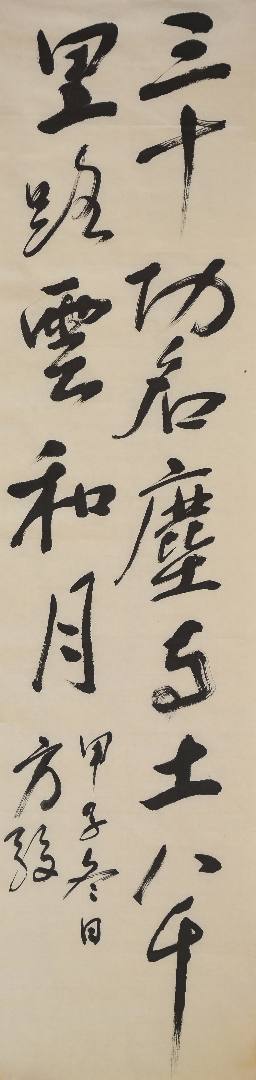 三十功名塵与土八千
里路雲和月
甲子冬日
方毅